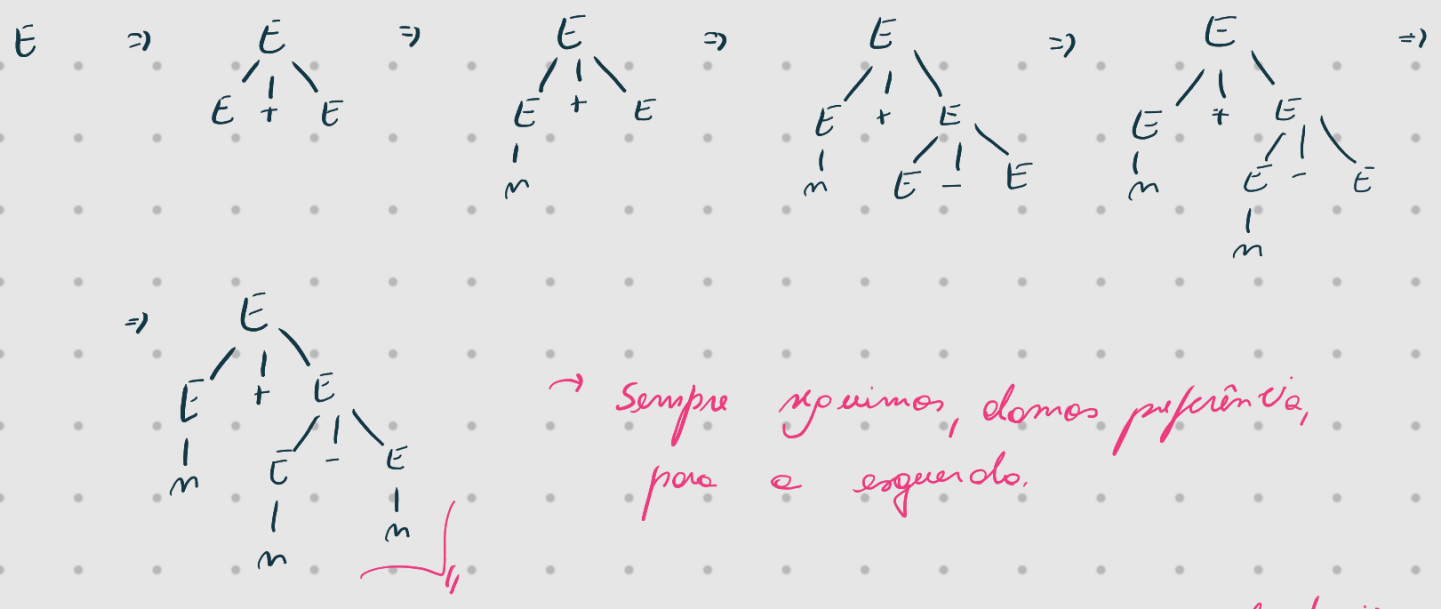 E ⇒ E ⇒ E ⇒ E ⇒ E ⇒
E + E E + E E + E E + E
n n E - E n E - E
n
⇒ E
E + E
n E - E
n n
→ Sempre seguimos, damos preferência,
para a esquerda.